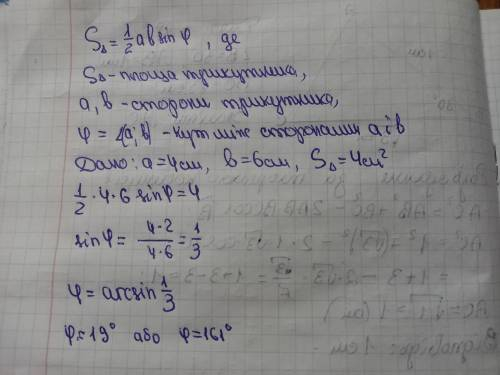 S△ = 1/2 ab sin φ , де
S△ - площа трикутника,
a, b - сторони трикутника,
φ = ∠(a; b) - кут між сторонами a і b
Дано: a=4см, b=6см, S△=4см²
1/2 · 4 · 6 sin φ = 4
sin φ = 4·2/4·6 = 1/3
φ = arcsin 1/3
φ≈19° або φ≈161°